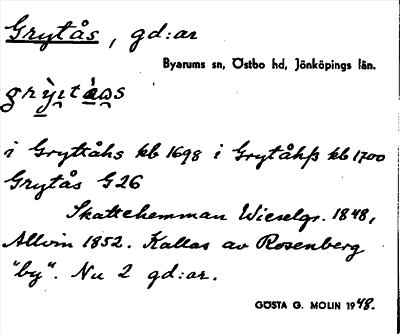 Grytås, gd:ar
Byarums sn, Östbo hd, Jönköpings län.
i Gryttåhs kb 1698 i Grytåhß kb 1700
Grytås G26
Skattehemman Wieselgr. 1848,
Allvin 1852. Kallas av Rosenberg
"by". Nu 2 gd:ar.
GÖSTA G. MOLIN 1948.